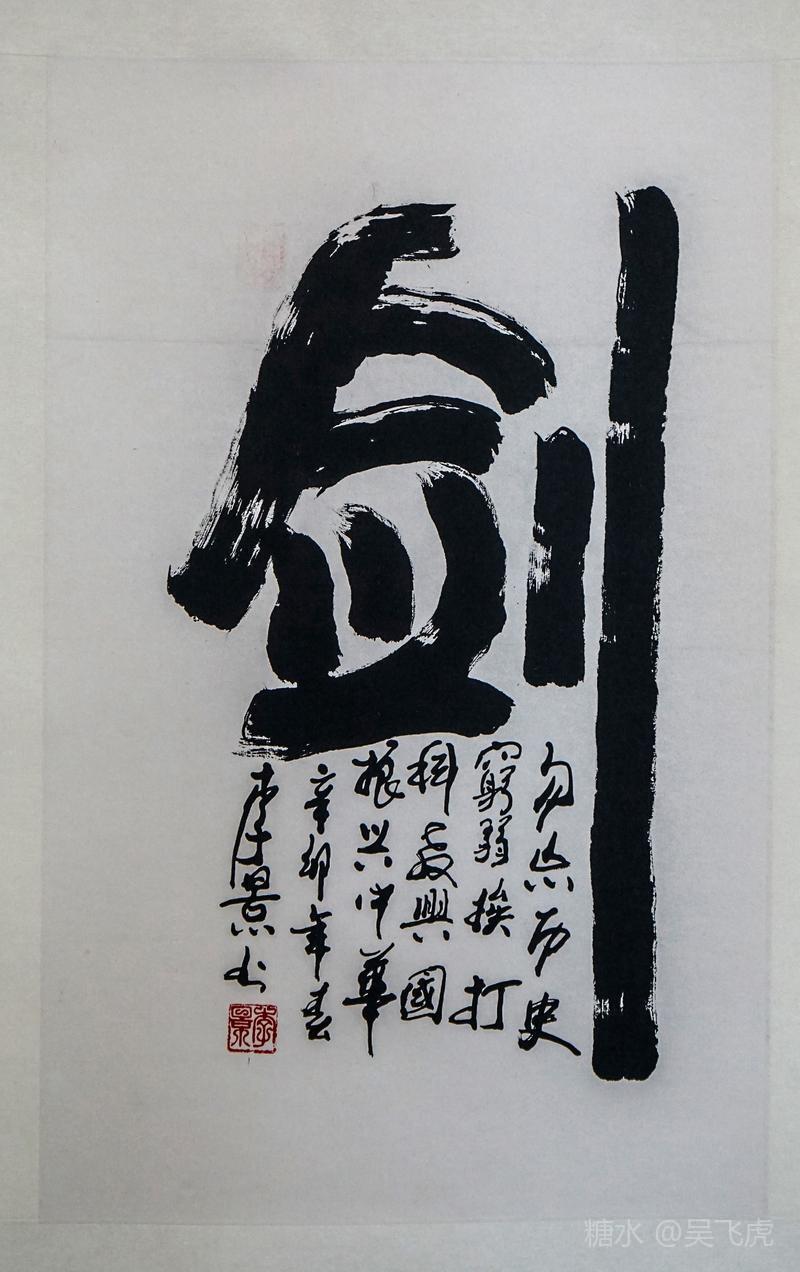 剑
勿忘历史
窮弱挨打
科教興國
振兴中华
辛卯年春
李景书
李景
糖水 @吴飞虎